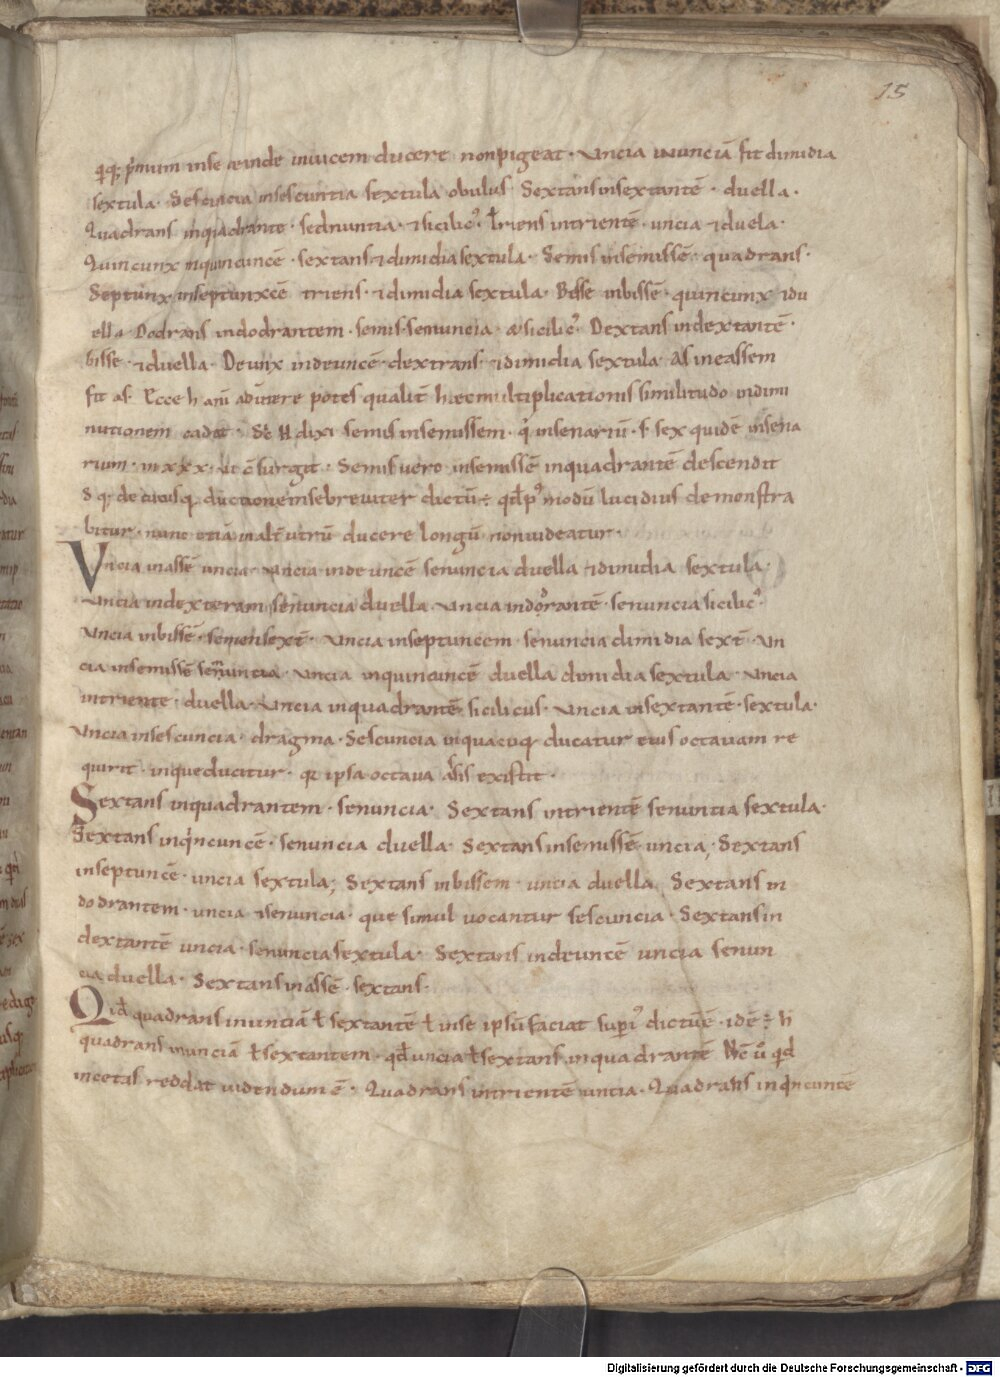 15
qq; p̄mum inse deinde inuicem ducere nonpigeat · Uncia inuncia fit dimidia
sextula · Sescuncia insescuntia sextula obulus Sextansinsextantē · duella ·
Quadrans inquadrante · sednuntia · &sicilic᾽ Triens intrientē · uncia &duela ·
Quincunx inquincuncē · sextans&dimidiasextula · Semis insemissē · quadrans ·
Septunx inseptunxcē triens · &dimidia sextula · Besse inbissē · quincunx &du
ella · Dodrans indodrantem · semis·semuncia · &sicilic᾽ Dextans indextantē ·
bisse · &duella · Deunx indeuncē · dextrans · &dimidia sextula · As ineassem
fit as · Ecce h aut aduertere potes qualit̄ haec multiplicationis similitudo indimi
nutionem cadat · Sē u dixi semis insemissem · q insenariū · s· sex quidē insena
rium · inxxx · ui c̄surgit · Semis uero insemissē inquadrantē descendit
S q; de cuiusq; ductioneinsebreuiter dictū ÷ qd p᾽ modū lucidius demonstra
bitur · nunc etiā inalt utrū ducere longū nonuideatur ·
Uncia inassē uncia · Uncia indeuncē senuncia duella &dimidia sextula ·
Uncia indexteram senuncia duella · Uncia indodrantē · senuncia sicilic᾽
Uncia inbissē · semensext̄ · Uncia inseptuncem · senuncia dimidia sext̄ · Un
cia insemissē senuntia · Uncia inquincuncē duella dimidia sextula · Uncia
intriente · duella · Uncia inquadrantē sicilicus · Uncia insextantē · sextula ·
Uncia insescuncia · dragma · Sescuncia inquacuq; ducatur eius octauam re
quirit · inqueducitur · q ipsa octaua assis existit ·
Sextans inquadrantem · senuncia · Sextans intrientē senuntia sextula ·
Sextans inqincuncē · senuncia duella · Sextans insemissē uncia; Sextans
inseptuncē · uncia sextula; Sextans inbissem · uncia duella, Sextans in
dodrantem · uncia &senuncia · que simul uocantur sescuncia · Sextans in
dextantē uncia · senuncia sextula · Sextans indeuncē uncia senun
cia duella · Sextans inassē · sextans ·
Qid quadrans inunciā ł sextantē ł inse ipsū faciat sup᾽ dictūē · idē ÷ h
quadrans inunciā ł sextantem · qd uncia ł sextans inquadrantē Nē u᾽ qd
incetas reddat uidendum ē · Quadrans intrientē untia · Quadrans inqincuntē
Digitalisierung gefördert durch die Deutsche Forschungsgemeinschaft - DFG